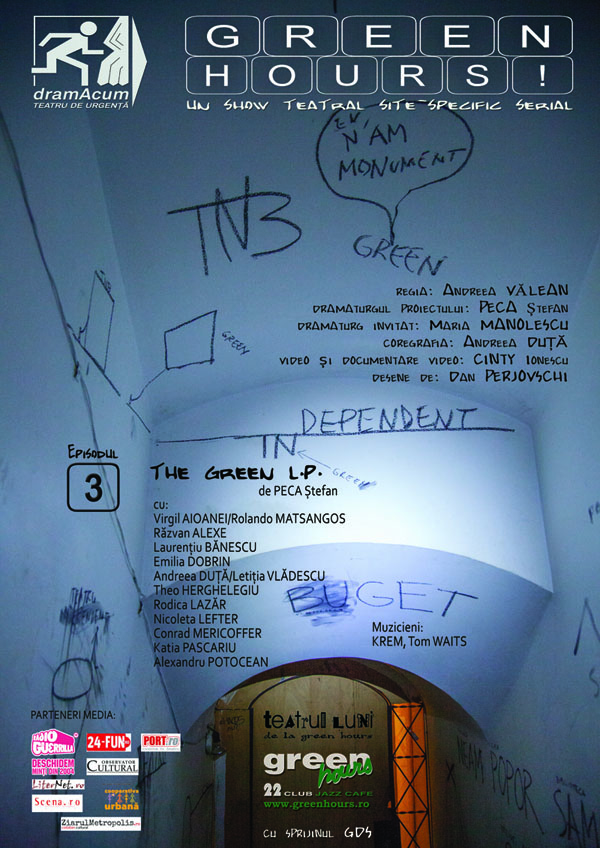 dramAcum
TEATRU DE URGENȚĂ
GREEN
HOURS!
UN SHOW TEATRAL SITE-SPECIFIC SERIAL
EU,
N'AM
MONUMENT
TNB
GREEN
REGIA: ANDREEA VĂLEAN
DRAMATURGUL PROIECTULUI: PECA ȘTEFAN
DRAMATURG INVITAT: MARIA MANOLESCU
COREGRAFIA: ANDREEA DUȚĂ
VIDEO ȘI DOCUMENTARE VIDEO: CINTY IONESCU
DESENE DE: DAN PERJOVSCHI
GREEN
DEPENDENT
IN
GREEN
EPISODUL
3
THE GREEN L.P.
de PECA Ștefan
cu:
Virgil AIOANEI/Rolando MATSANGOS
Răzvan ALEXE
Laurențiu BĂNESCU
Emilia DOBRIN
Andreea DUȚĂ/Letiția VLĂDESCU
Theo HERGHELEGIU
Rodica LAZĂR
Nicoleta LEFTER
Conrad MERICOFFER
Katia PASCARIU
Alexandru POTOCEAN
BUGET
Muzicieni:
KREM, Tom WAITS
TEATRU
PARTENERI MEDIA:
RADIO
GUERRILLA
DESCHIDEM
MINȚI DIN 2004
24-FUN
PORT.ro
OBSERVATOR
CULTURAL
LiterNet.ro
Scena.ro
cooperativa
urbană
ZiarulMetropolis.ro
teatrul luni
de la green hours
green
hours
22 CLUB JAZZ CAFE
www.greenhours.ro
POPOR
CU SPRIJINUL GDS